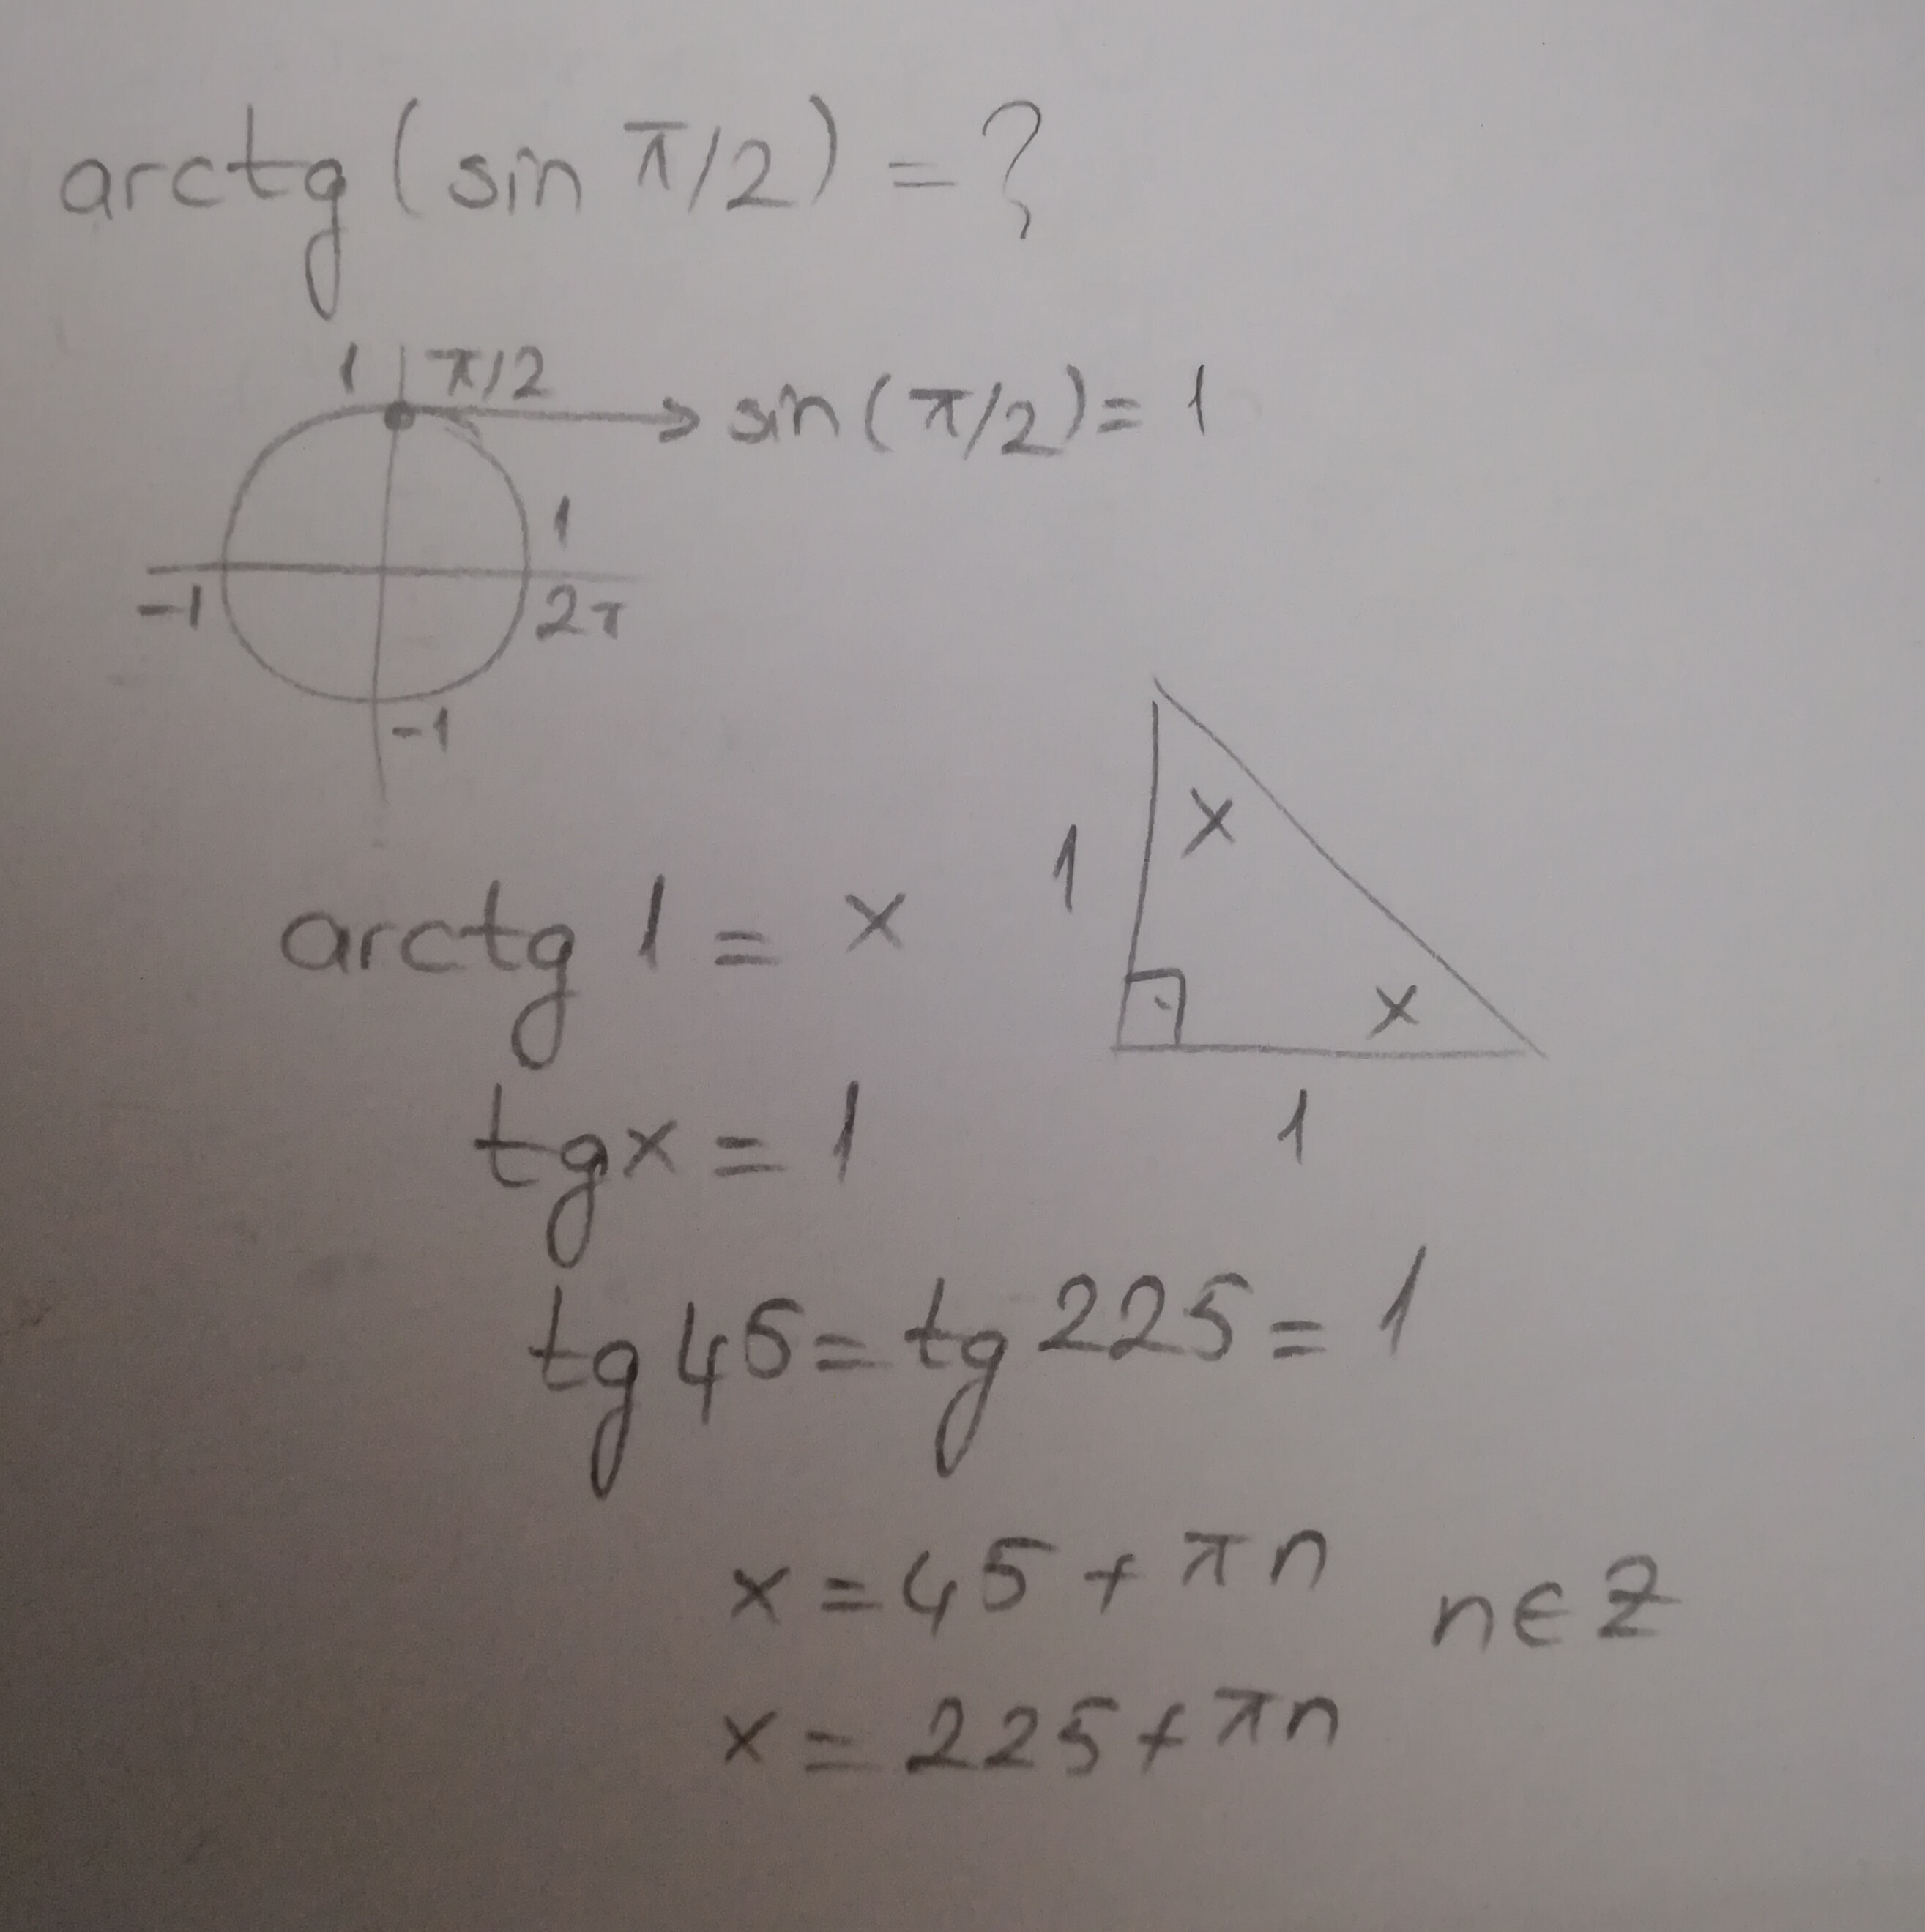 arctg (sin π/2) = ?
1 π/2
sin (π/2) = 1
1
-1 2π
-1
x
1
arctg 1 = x
x
1
tgx = 1
tg 45 = tg 225 = 1
x = 45 + πn n∈Z
x = 225 + πn